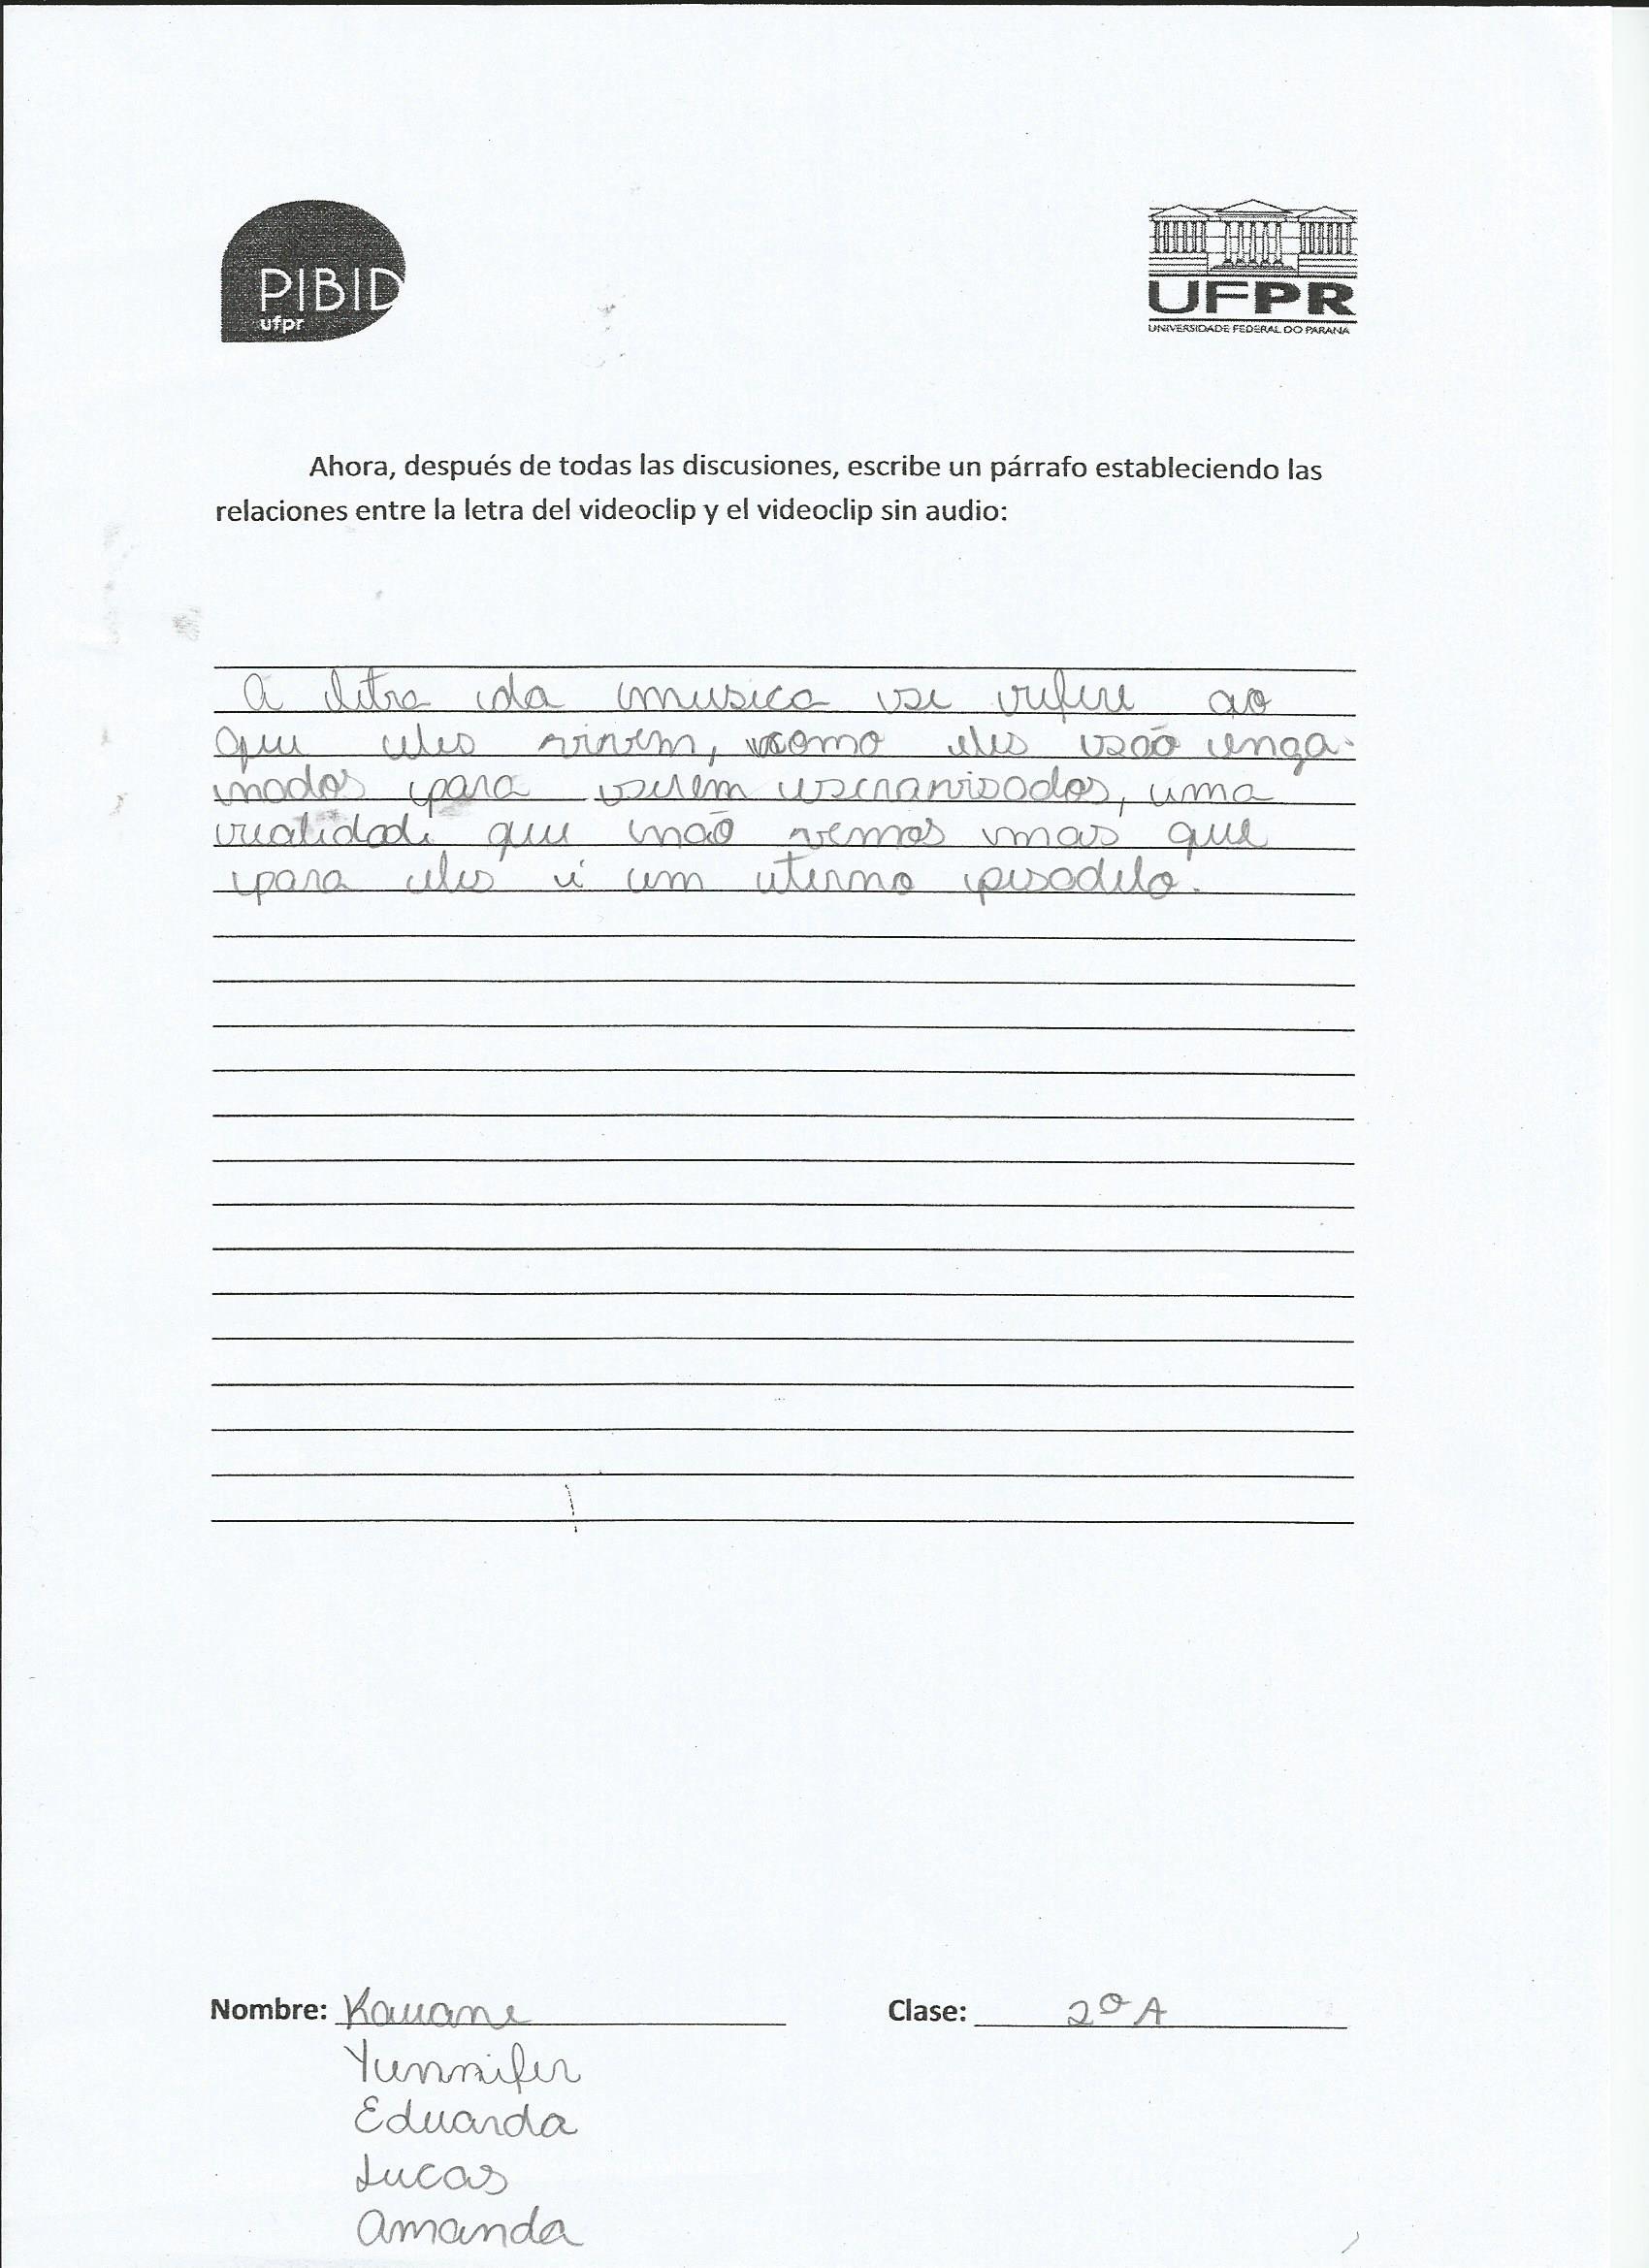 PIBID
ufpr
UFPR
UNIVERSIDADE FEDERAL DO PARANÁ
Ahora, después de todas las discusiones, escribe un párrafo estableciendo las
relaciones entre la letra del videoclip y el videoclip sin audio:
A letra da musica se refere ao
que eles vivem, como eles são enga-
nados para serem escravisados, uma
realidade que não vemos mas que
para eles é um eterno pesadelo.
Nombre: Kauane
Clase: 2º A
Yennifer
Eduarda
Lucas
Amanda